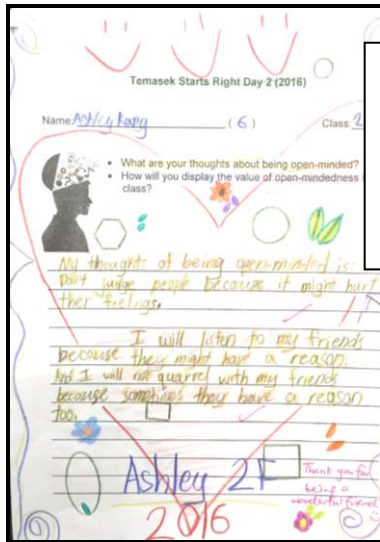 Temasek Starts Right Day 2 (2016)
Name: Ashley Kang (6) Class: 2
• What are your thoughts about being open-minded?
• How will you display the value of open-mindedness
class?
My thoughts of being open-minded is:
Don't judge people because it might hurt
ther feelings.
I will listen to my friends
because they might have a reason.
And I will not quarrel with my friends
because somtimes they have a reason
too.
Ashley 2F
2016
Thank you for
being a
wonderful friend